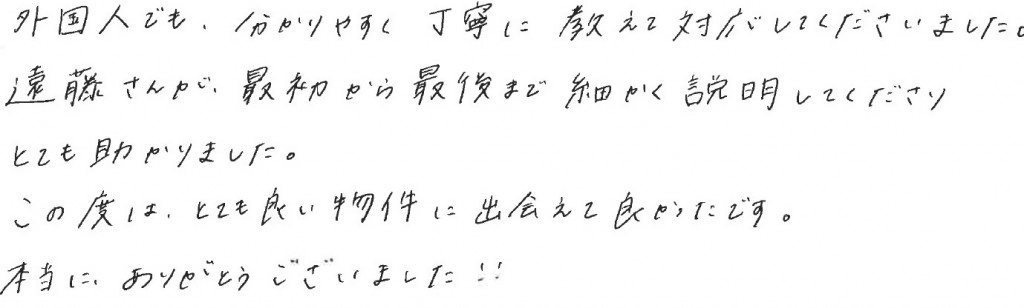 外国人でも、分かりやすく丁寧に教えて対応してくださいました。
遠藤さんが、最初から最後まで細かく説明してくださり
とても助かりました。
この度は、とても良い物件に出会えて良かったです。
本当に、ありがとうございました!!